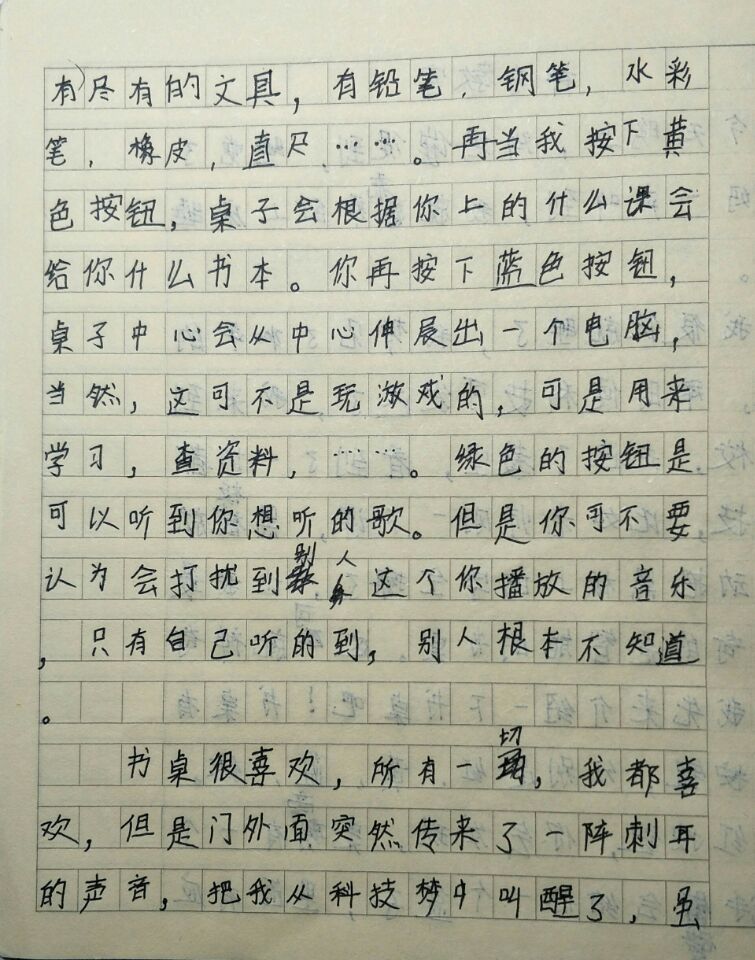 有尽有的文具，有铅笔，钢笔，水彩
笔，橡皮，直尺……。再当我按下黄
色按钮，桌子会根据你上的什么课会
给你什么书本。你再按下蓝色按钮，
桌子中心会从中心伸展出一个电脑，
当然，这可不是玩游戏的，可是用来
学习，查资料，……。绿色的按钮是
可以听到你想听的歌。但是你可不要
认为会打扰到别人这个你播放的音乐
，只有自己听的到，别人根本不知道
。
书桌很喜欢，所有一切，我都喜
欢，但是门外面突然传来了一阵刺耳
的声音，把我从科技梦中叫醒了，虽